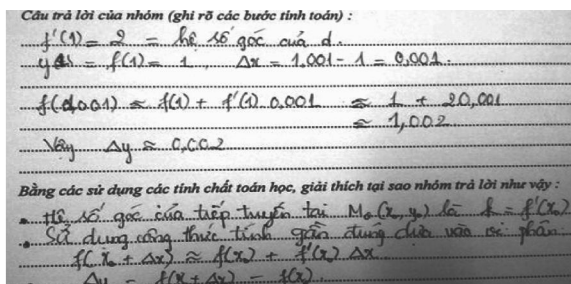 Câu trả lời của nhóm (ghi rõ các bước tính toán) :
f'(1) = 2 = hệ số góc của d.
= f(1) = 1 , Δx = 1.001 - 1 = 0,001.
f(1,001) ≈ f(1) + f'(1) 0.001 ≈ 1 + 2 0,001
≈ 1,002
Vậy Δy ≈ 0,002
Bằng các sử dụng các tính chất toán học, giải thích tại sao nhóm trả lời như vậy :
• Hệ số góc của tiếp tuyến tại M₀(x₀, y₀) là k = f'(x₀)
• Sử dụng công thức tính gần đúng dựa vào vi phân
f(x₀ + Δx) ≈ f(x₀) + f'(x₀) Δx
Δy = f(x + Δx) - f(x).